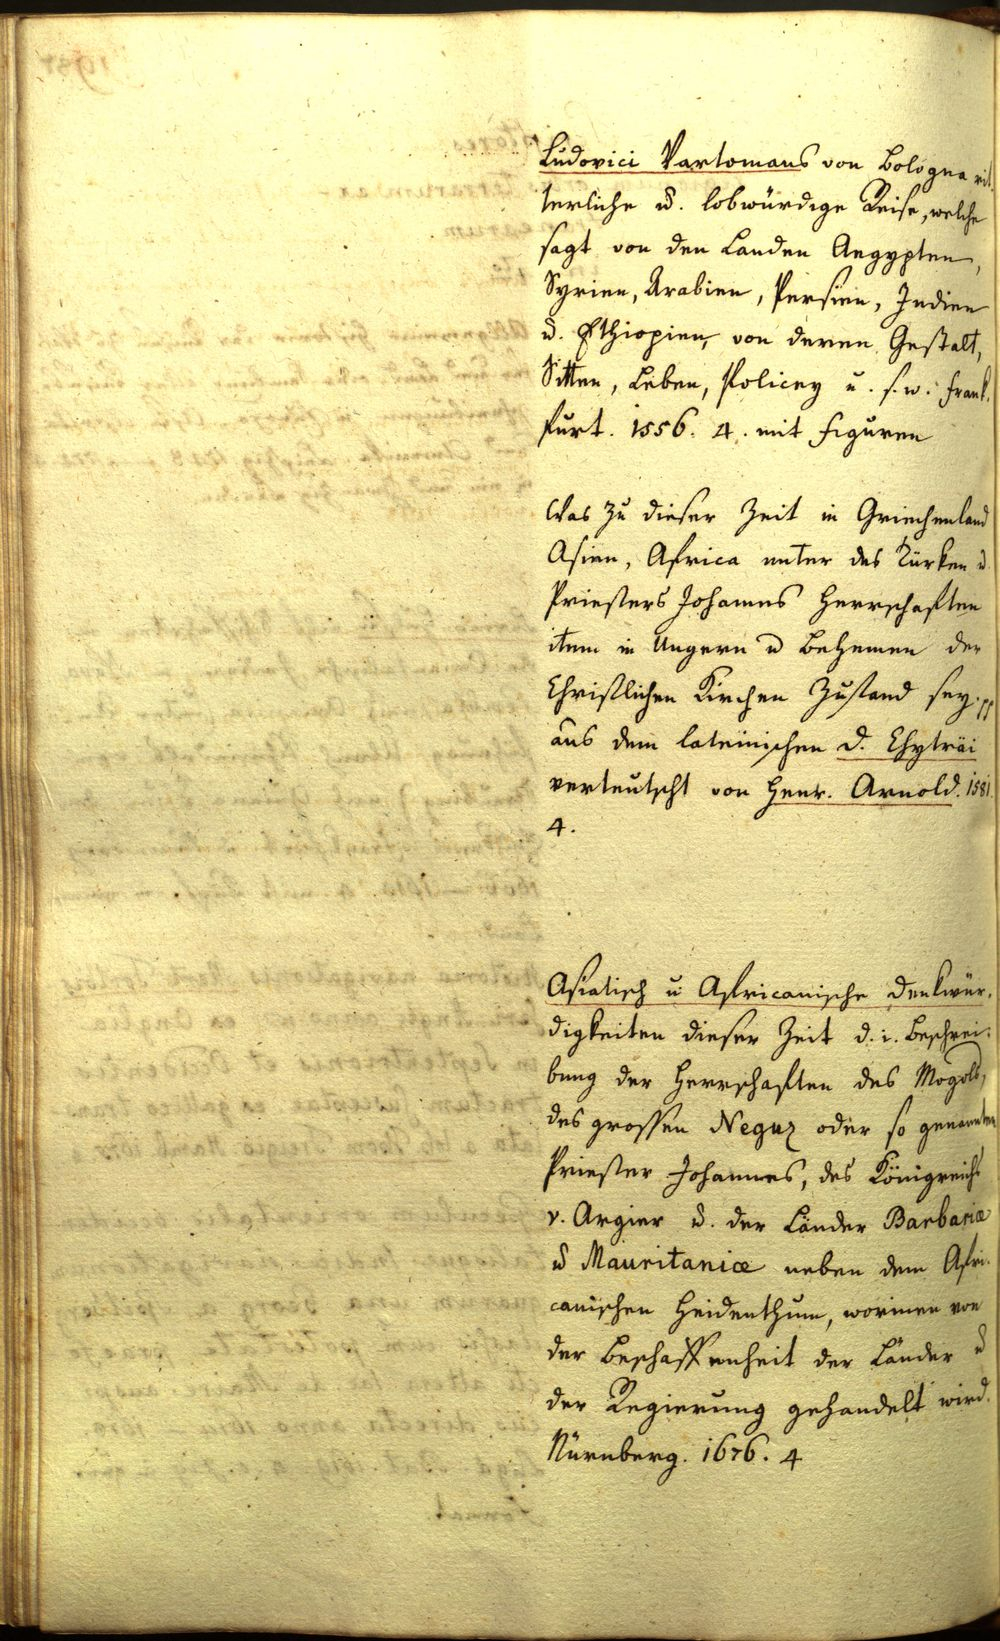 Ludovici Vartomans von Bologna rit¬
terliche u. lobwürdige Reise, welche
sagt von den Landen Aegypten,
Syrien, Arabien, Persien, Indien
u. Ethiopien, von deren Gestalt,
Sitten, Leben, Policey u. s. w. Frank¬
furt. 1556. 4. mit Figuren
Was zu dieser Zeit in Griechenland
Asien, Africa unter des Türken u.
Priesters Johannes Herrschaften
item in Ungern u Behemen der
Christlichen Kirchen Zustand sey.
aus dem lateinischen D. Chyträi
verteutscht von Henr. Arnold. 1581.
4.
Asiatisch u Africanische Denkwür¬
digkeiten dieser Zeit d. i. Beschrei¬
bung der Herrschaften des Mogols,
des grossen Neguz oder so genannten
Priester Johannes, des Königreichs
v. Argier u. der Länder Barbariæ
u Mauritaniæ neben dem Afri¬
canischen Heidenthum, worinnen von
der Beschaffenheit der Länder u
der Regierung gehandelt wird.
Nürnberg. 1676. 4